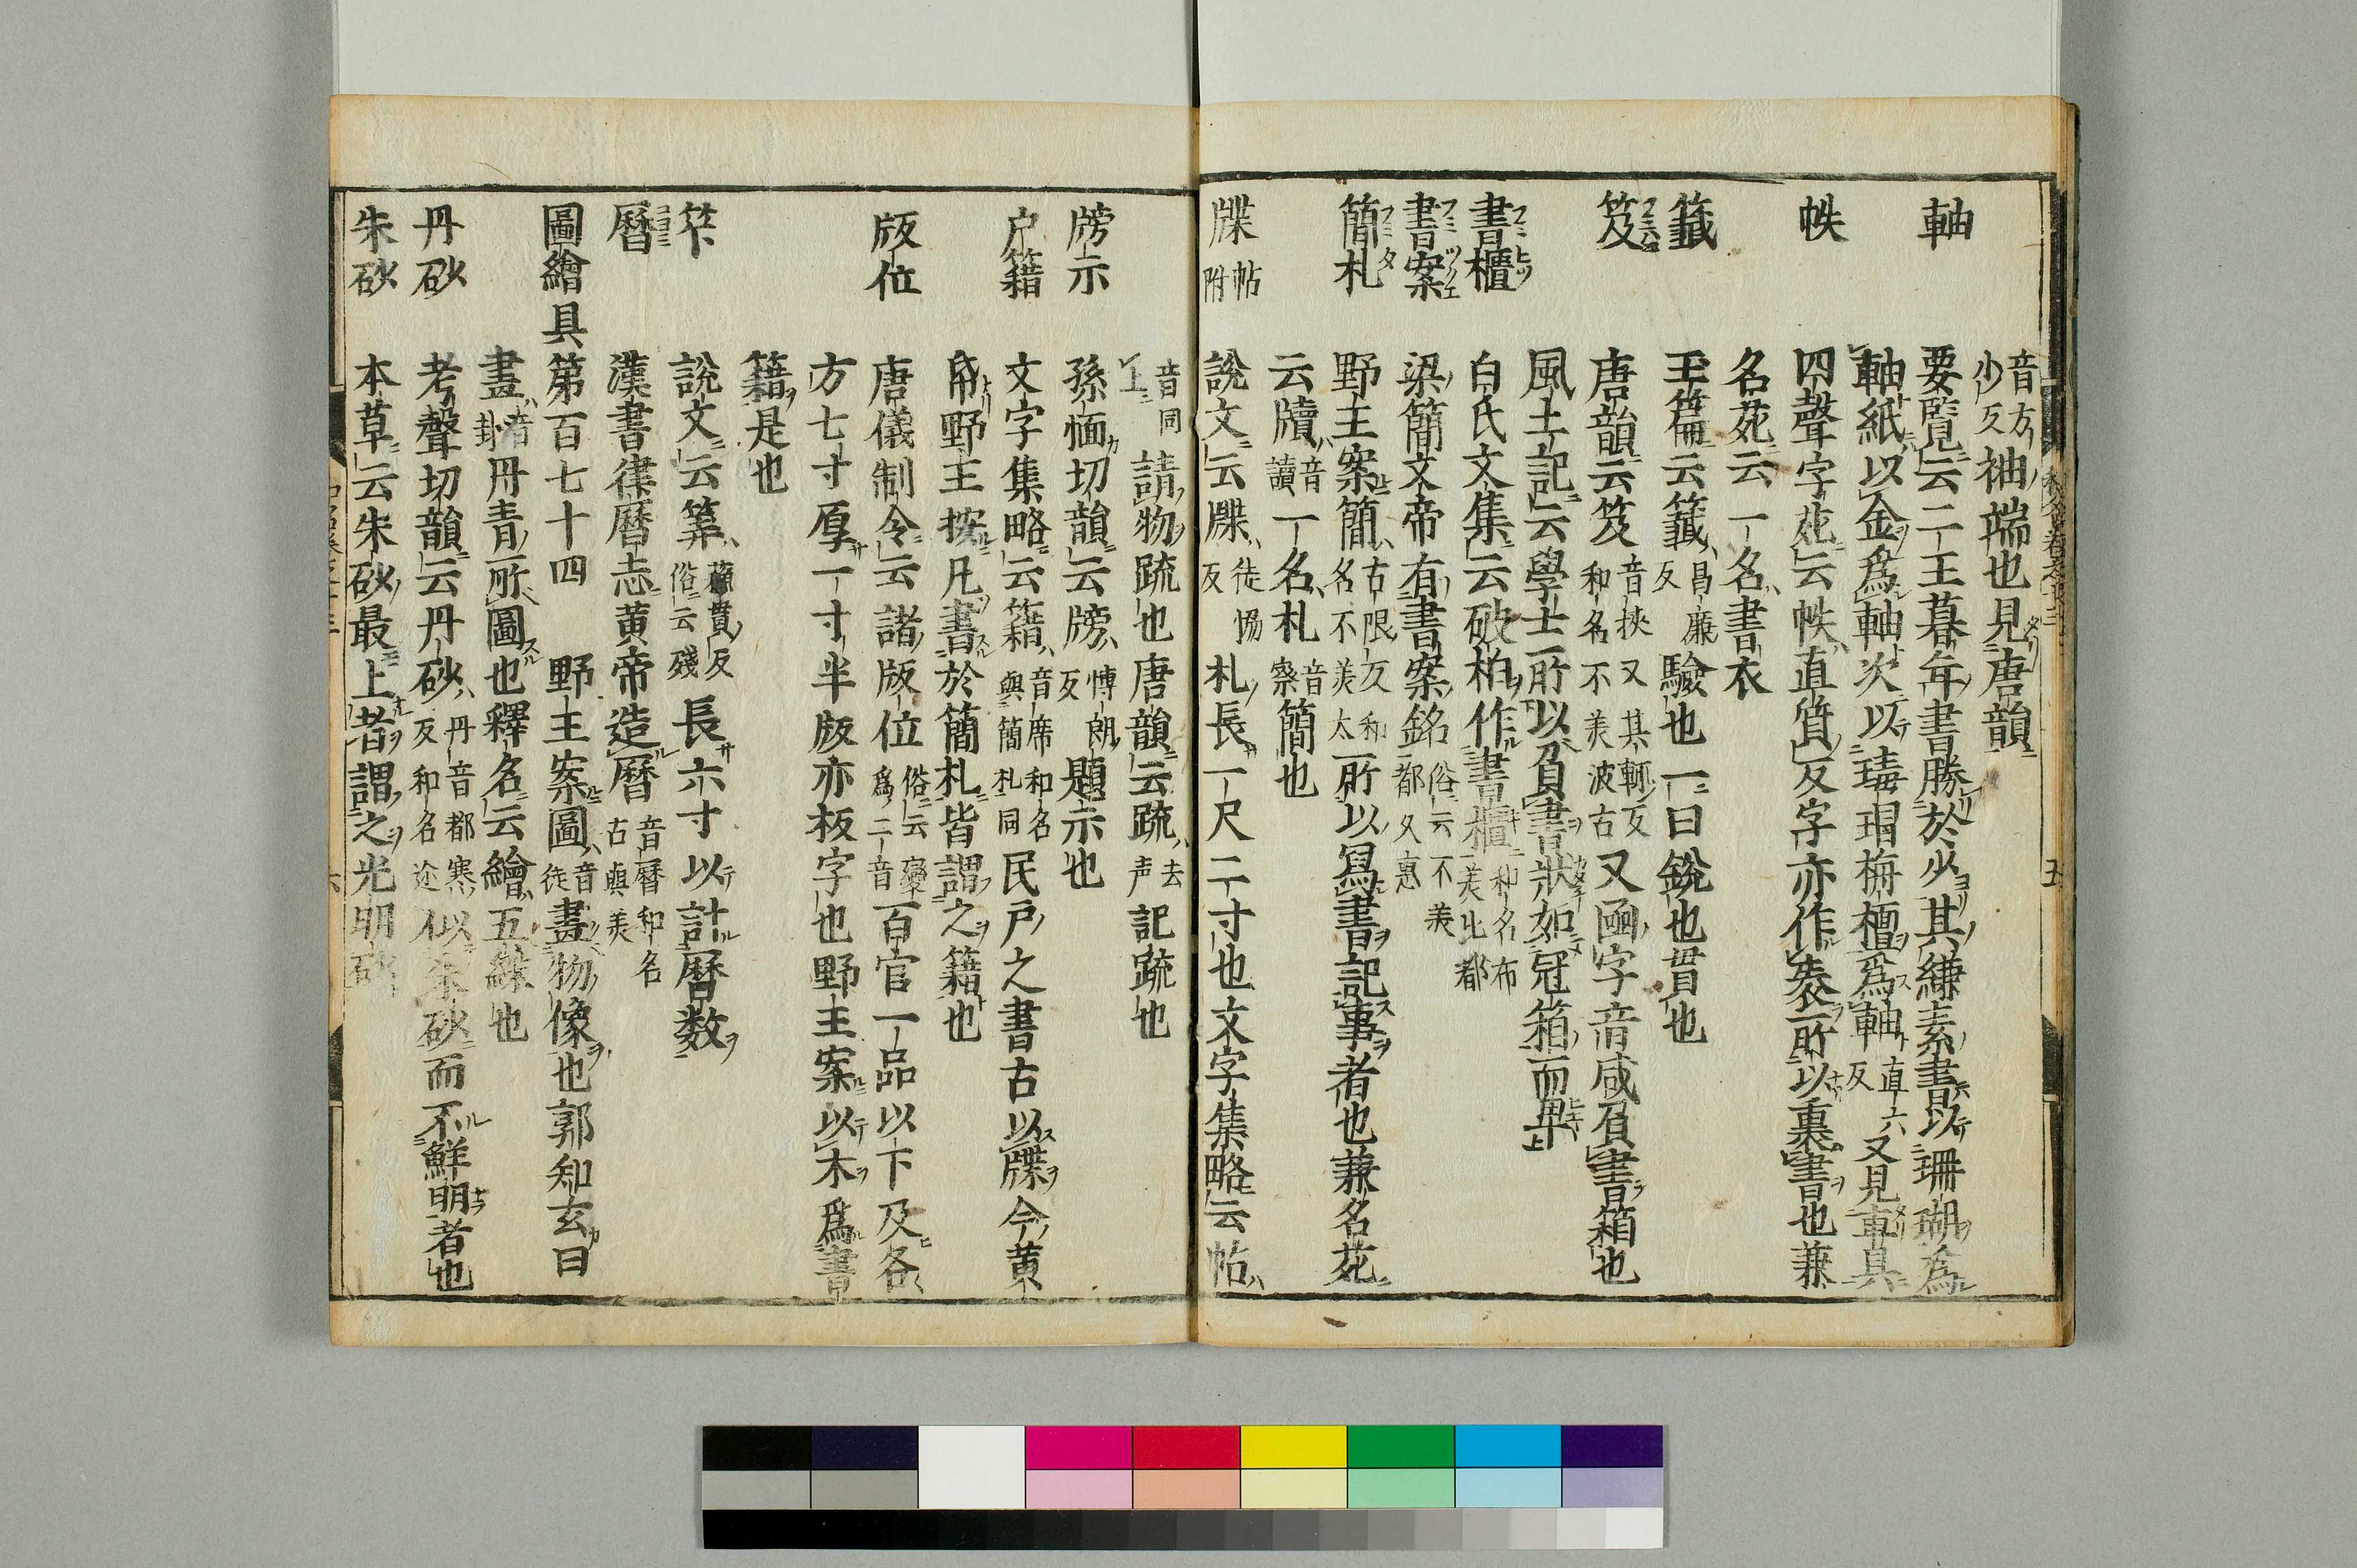 音方少反 袖端也見唐韻
軸 要覧云二王暮年書勝於少其縑素書以珊瑚為
軸紙以金為軸次以瑇瑁梅檀為軸 直六反 又見車具
帙 四聲字苑云帙直質反字亦作袠所以裹書也兼
名苑云一名書衣
籤 玉篇云籤 昌廉反 驗也一曰銳也貫也
笈 唐韻云笈 音挾又其輒反和名不美波古 又凾字音咸負書箱也
風土記云學士所以負書狀如冠箱而卑
書櫃 白氏文集云破柏作書櫃 和名布美比都
書案 梁簡文帝有書案銘 俗云不美都久恵
簡札 野王案簡 古限反和名不美太 所以冩書記事者也兼名苑
云牘 音讀 一名札 音察 簡也
牒 帖附 說文云牒 徒恊反 札長一尺二寸也文字集略云帖
音同上 請物䟽也唐韻云䟽 去声 記䟽也
牓示 孫愐切韻云牓 博朗反 題示也
户籍 文字集略云籍 音席和名與簡札同 民户之書古以牒今黄
帋野王按凡書於簡札皆謂之籍也
版位 唐儀制令云諸版位 俗云變為二音 百官一品以下及各
方七寸厚一寸半版亦板字也野王案以木為書
籍是也
筭 說文云筭 蘇貫反俗云殘 長六寸以計曆数
曆 漢書律曆志黄帝造曆 音曆和名古與美
圖繪具第百七十四 野王案圖 音徒 畫物像也郭知玄曰
畫 音卦 丹青所圖也釋名云繪五綵也
丹砂 考聲切韻云丹砂 丹音都寒反和名迩 似朱砂而不鮮明者也
朱砂 本草云朱砂最上者謂之光明砂